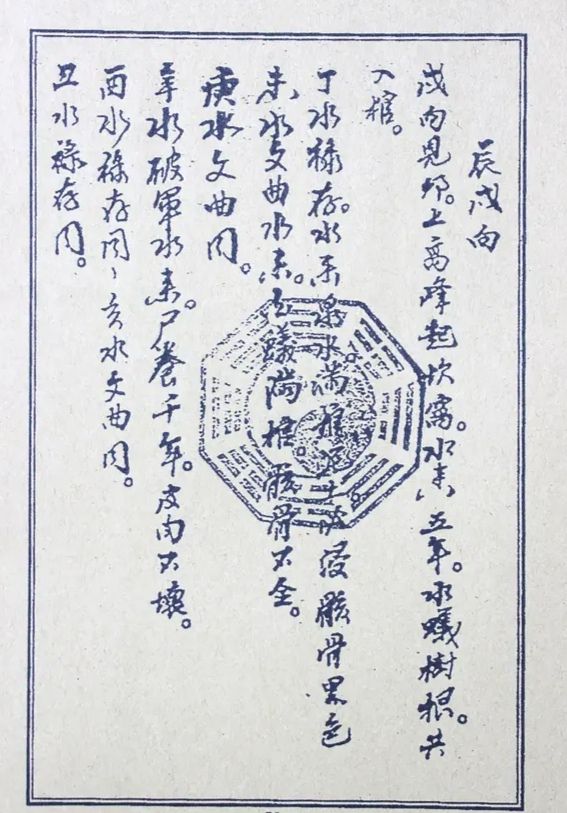 辰戌向
戌向見卯。上高峰起坎窩。水来八五年。水蟻樹根。共
入棺。
丁水祿存。水来濕水。満棺泥土改侵骸骨黑色
未水文曲水来。白蟻満棺。骸骨不全。
庚水文曲同。
辛水破軍水来。尸養千年。皮肉不壞。
酉水祿存同、亥水文曲同。
丑水祿存同。